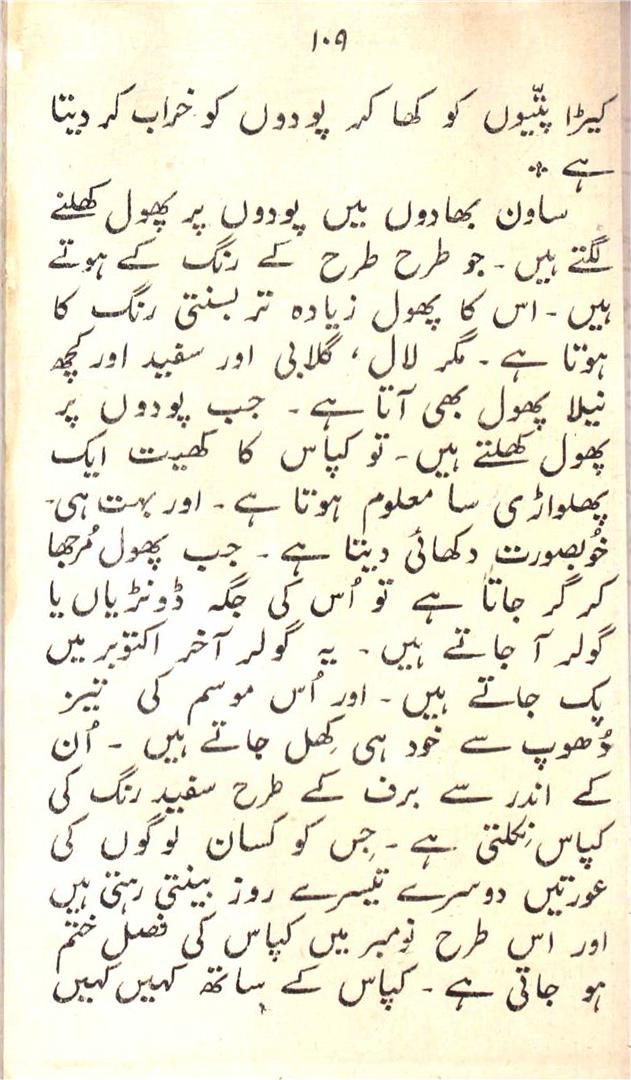 ۱۰۹
کیڑا پتّیوں کو کھا کر پودوں کو خراب کر دیتا
ہے ٭
ساون بھادوں میں پودوں پر پھول کھلنے
لگتے ہیں ۔ جو طرح طرح کے رنگ کے ہوتے
ہیں ۔ اس کا پھول زیادہ تر بسنتی رنگ کا
ہوتا ہے ۔ مگر لال ، گلابی اور سفید اور کچھ
نیلا پھول بھی آتا ہے ۔ جب پودوں پر
پھول کھلتے ہیں ۔ تو کپاس کا کھیت ایک
پھلواڑی سا معلوم ہوتا ہے ۔ اور بہت ہی
خُوبصورت دکھائی دیتا ہے ۔ جب پھول مُرجھا
کر گر جاتا ہے تو اُس کی جگہ ڈونڑیاں یا
گولر آ جاتے ہیں ۔ یہ گولر آخر اکتوبر میں
پک جاتے ہیں ۔ اور اُس موسم کی تیز
دُھوپ سے خود ہی کِھل جاتے ہیں ۔ اُن
کے اندر سے برف کے طرح سفید رنگ کی
کپاس نِکلتی ہے ۔ جِس کو کسان لوگوں کی
عورتیں دوسرے تیسرے روز بینتی رہتی ہیں
اور اس طرح نومبر میں کپاس کی فصل ختم
ہو جاتی ہے ۔ کپاس کے ساتھ کہیں کہیں